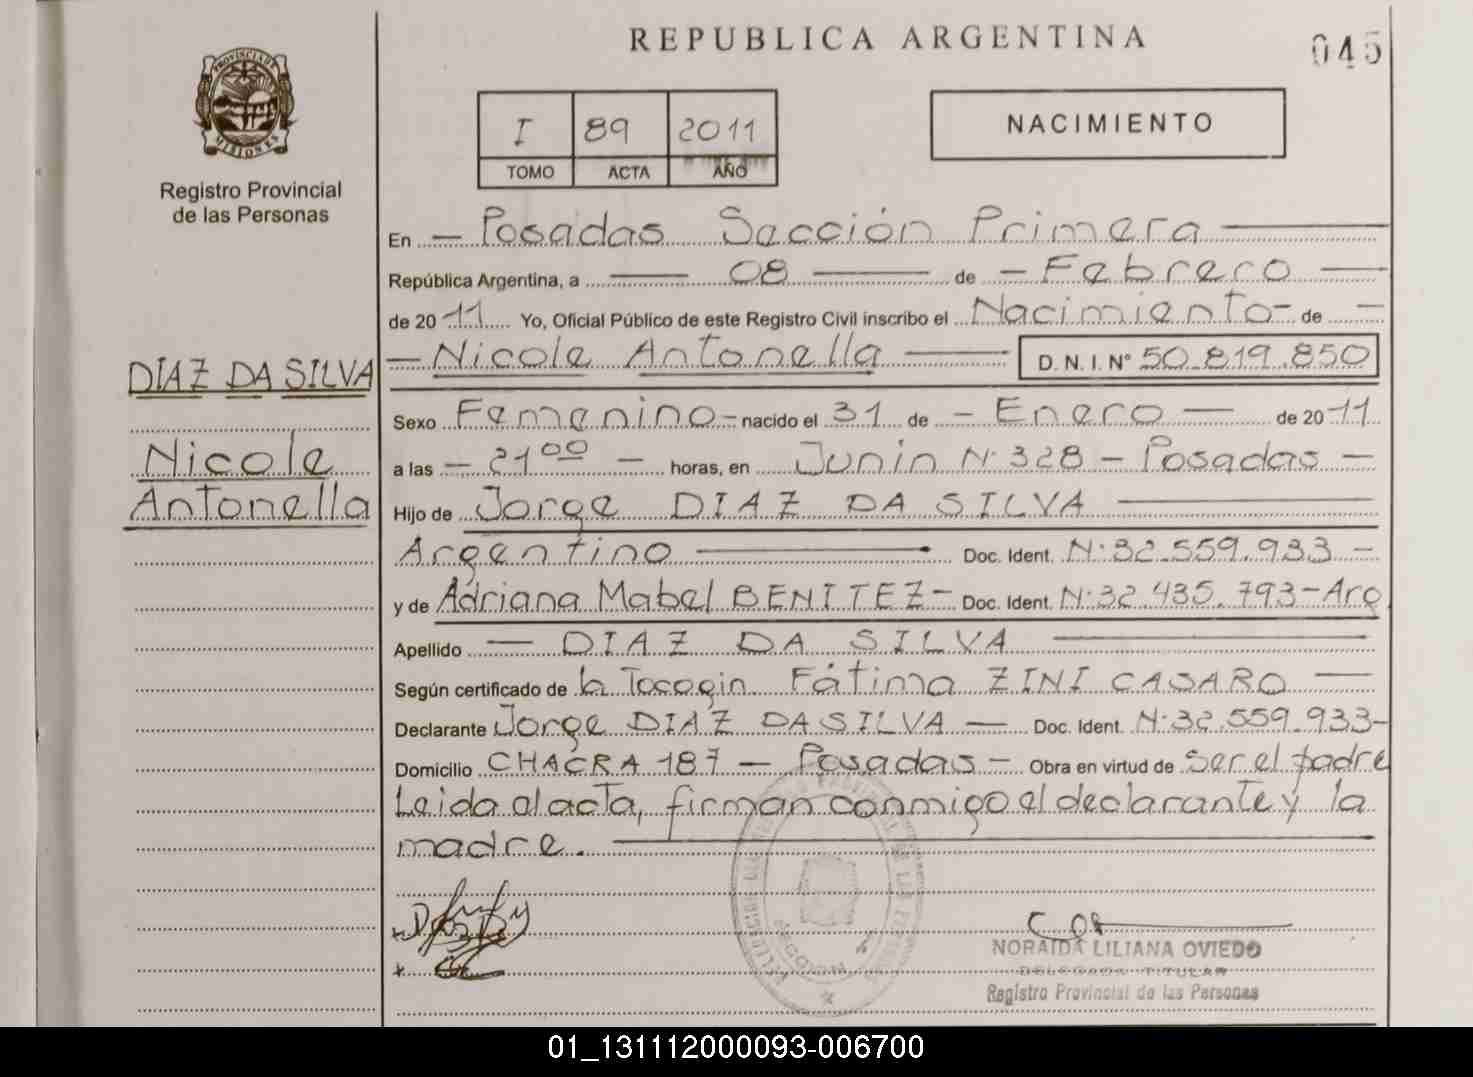 REPUBLICA ARGENTINA
045
PROVINCIA DE
MISIONES
Registro Provincial
de las Personas
I 89 2011
TOMO ACTA AÑO
NACIMIENTO
En — Posadas Sección Primera —
República Argentina, a — 08 — de — Febrero —
de 2011 Yo, Oficial Público de este Registro Civil inscribo el Nacimiento - de —
— Nicole Antonella — D.N.I. Nº 50.819.850
DIAZ DA SILVA
Nicole
Antonella
Sexo Femenino - nacido el 31 de — Enero — de 2011
a las — 21 00 — horas, en Junin N· 328 — Posadas —
Hijo de Jorge DIAZ DA SILVA —
Argentino — Doc. Ident. N· 32.559.933 —
y de Adriana Mabel BENITEZ - Doc. Ident. N· 32.435.793 - Arg
Apellido — DIAZ DA SILVA —
Según certificado de la Tocogin Fátima ZINI CASARO —
Declarante Jorge DIAZ DA SILVA — Doc. Ident. N· 32.559.933 -
Domicilio CHACRA 187 — Posadas — Obra en virtud de ser el padre
Leida el acta, firman conmigo el declarante y la
madre. —
NORAIDA LILIANA OVIEDO
DELEGADA TITULAR
Registro Provincial de las Personas
01_131112000093-006700